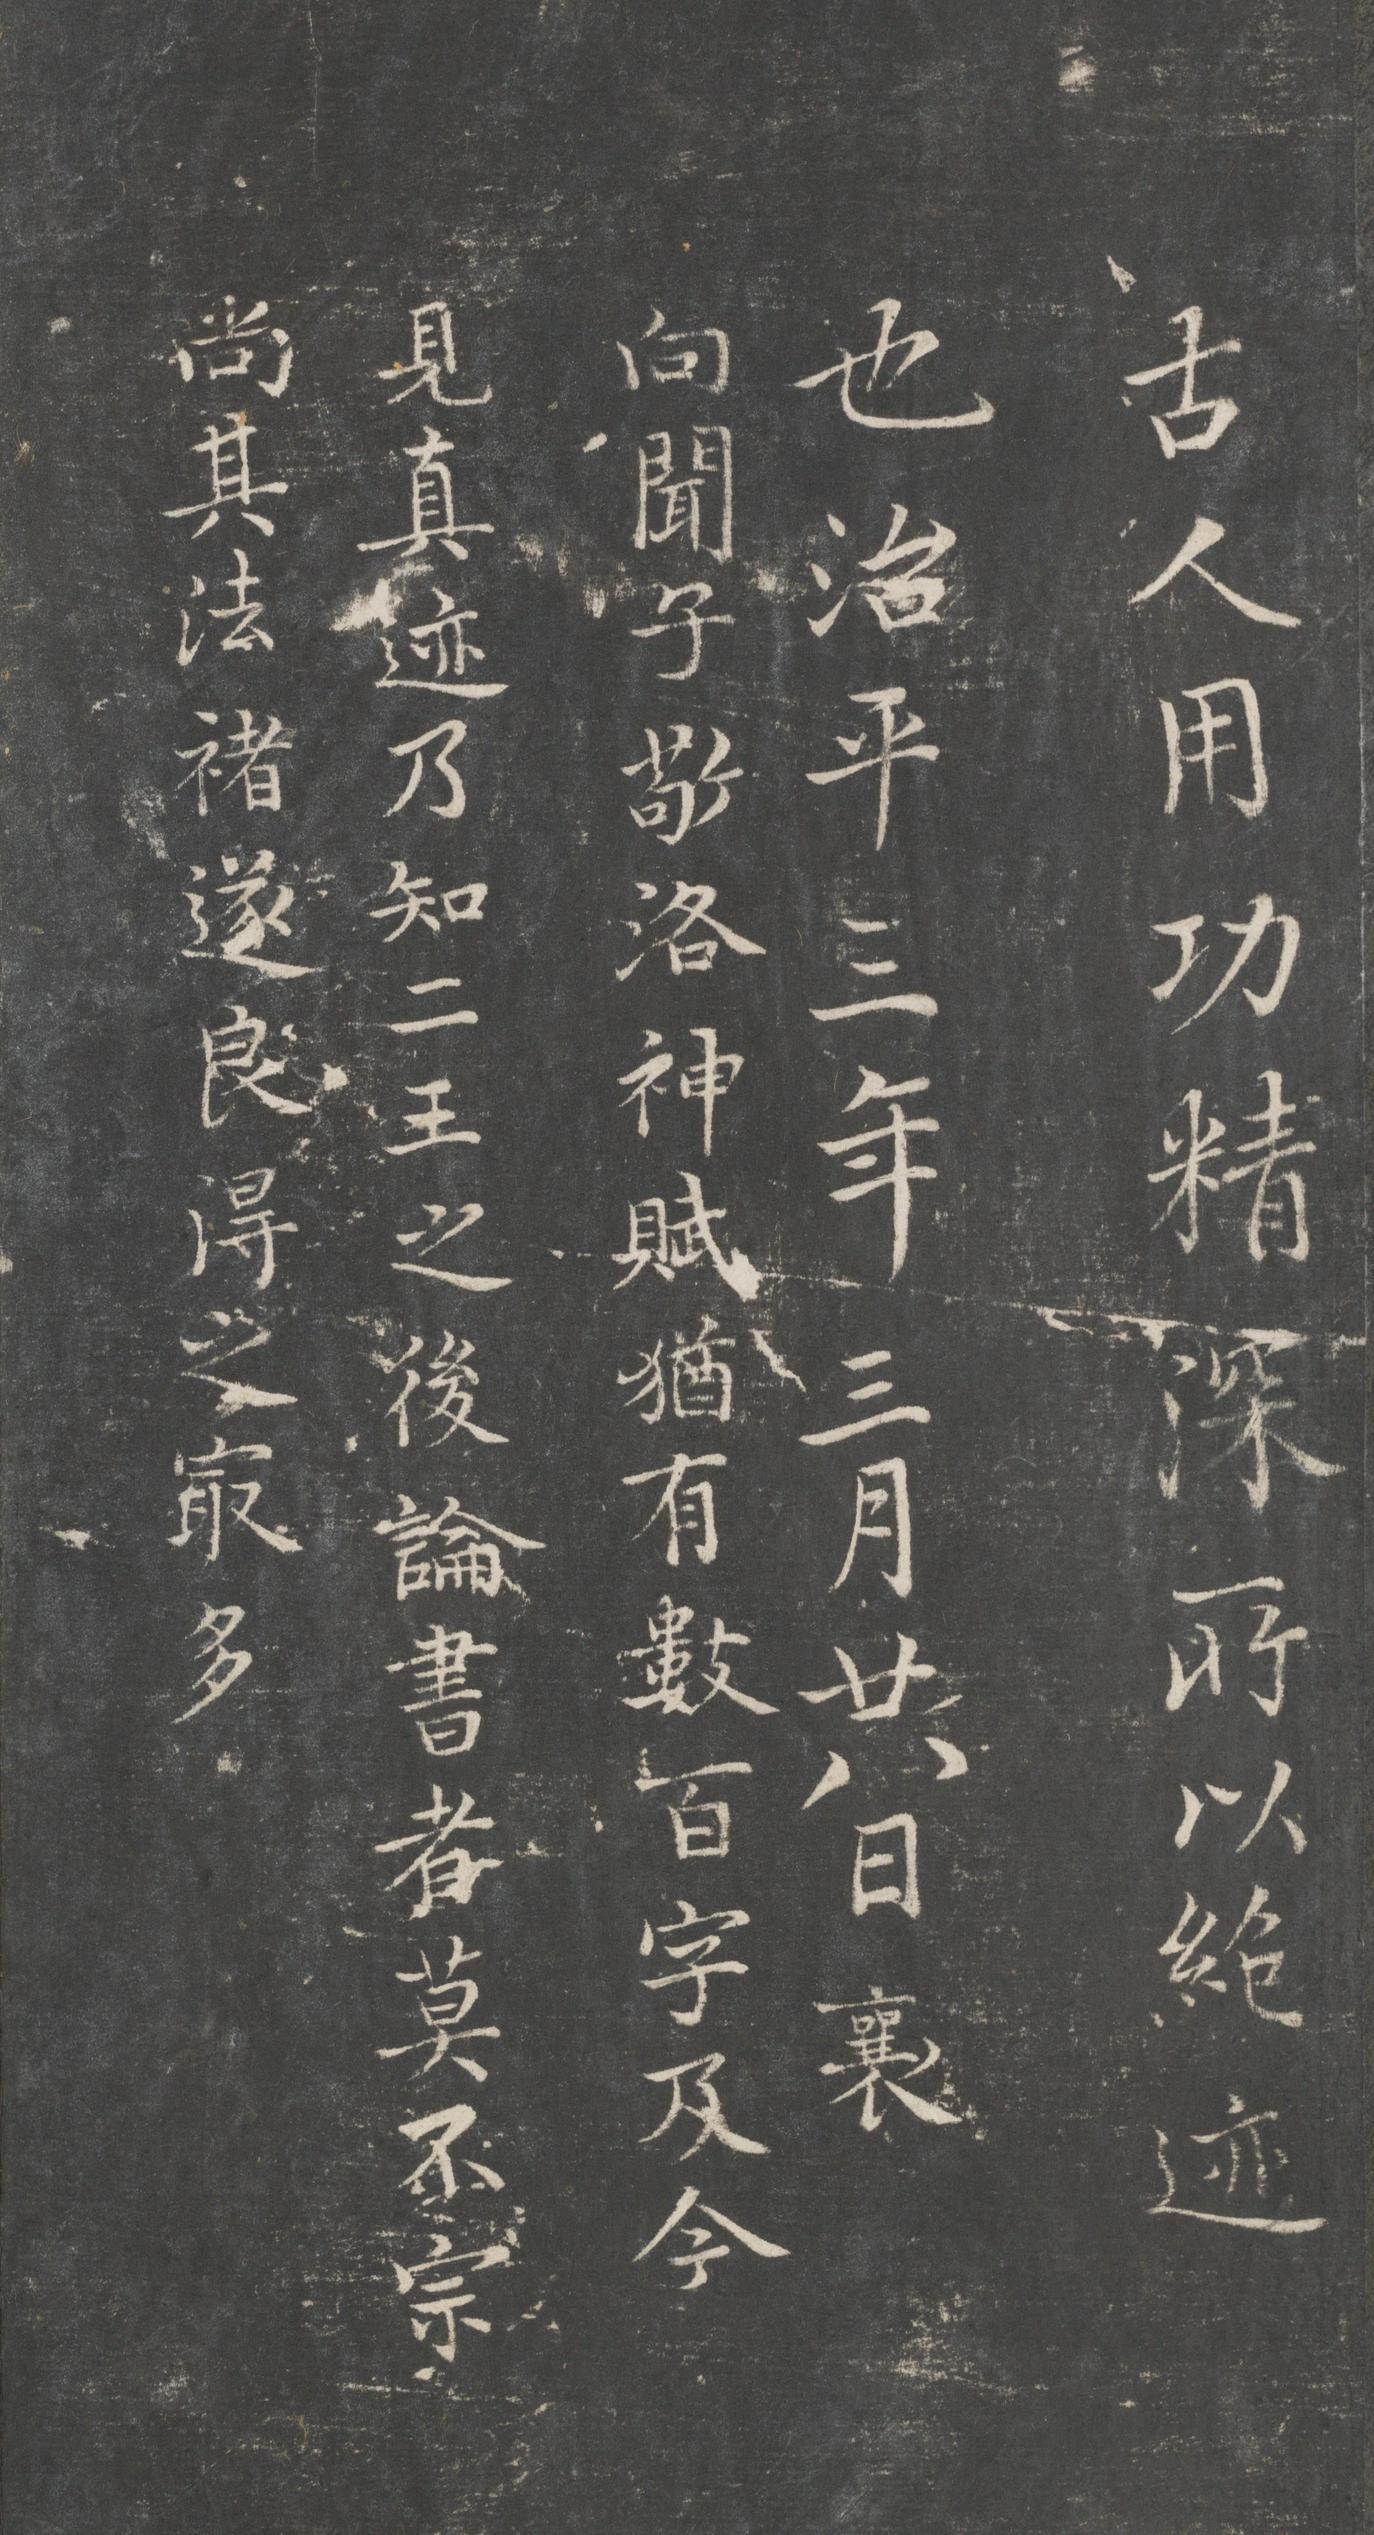 古人用功精深所以絶迹
也治平三年三月廿八日襄
向聞子敬洛神賦猶有數百字及今
見真迹乃知二王之後論書者莫不宗
尚其法褚遂良得之㝡多